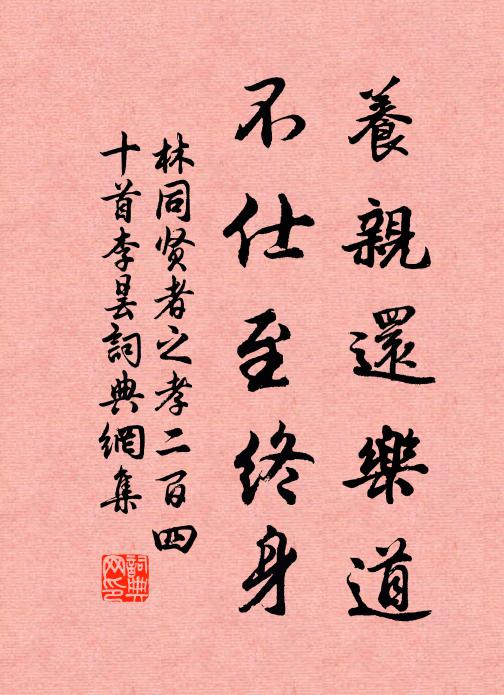 養親還樂道
不仕至終身
林同贤者之孝二百四
十首李昙詞典網集
詞典
网印